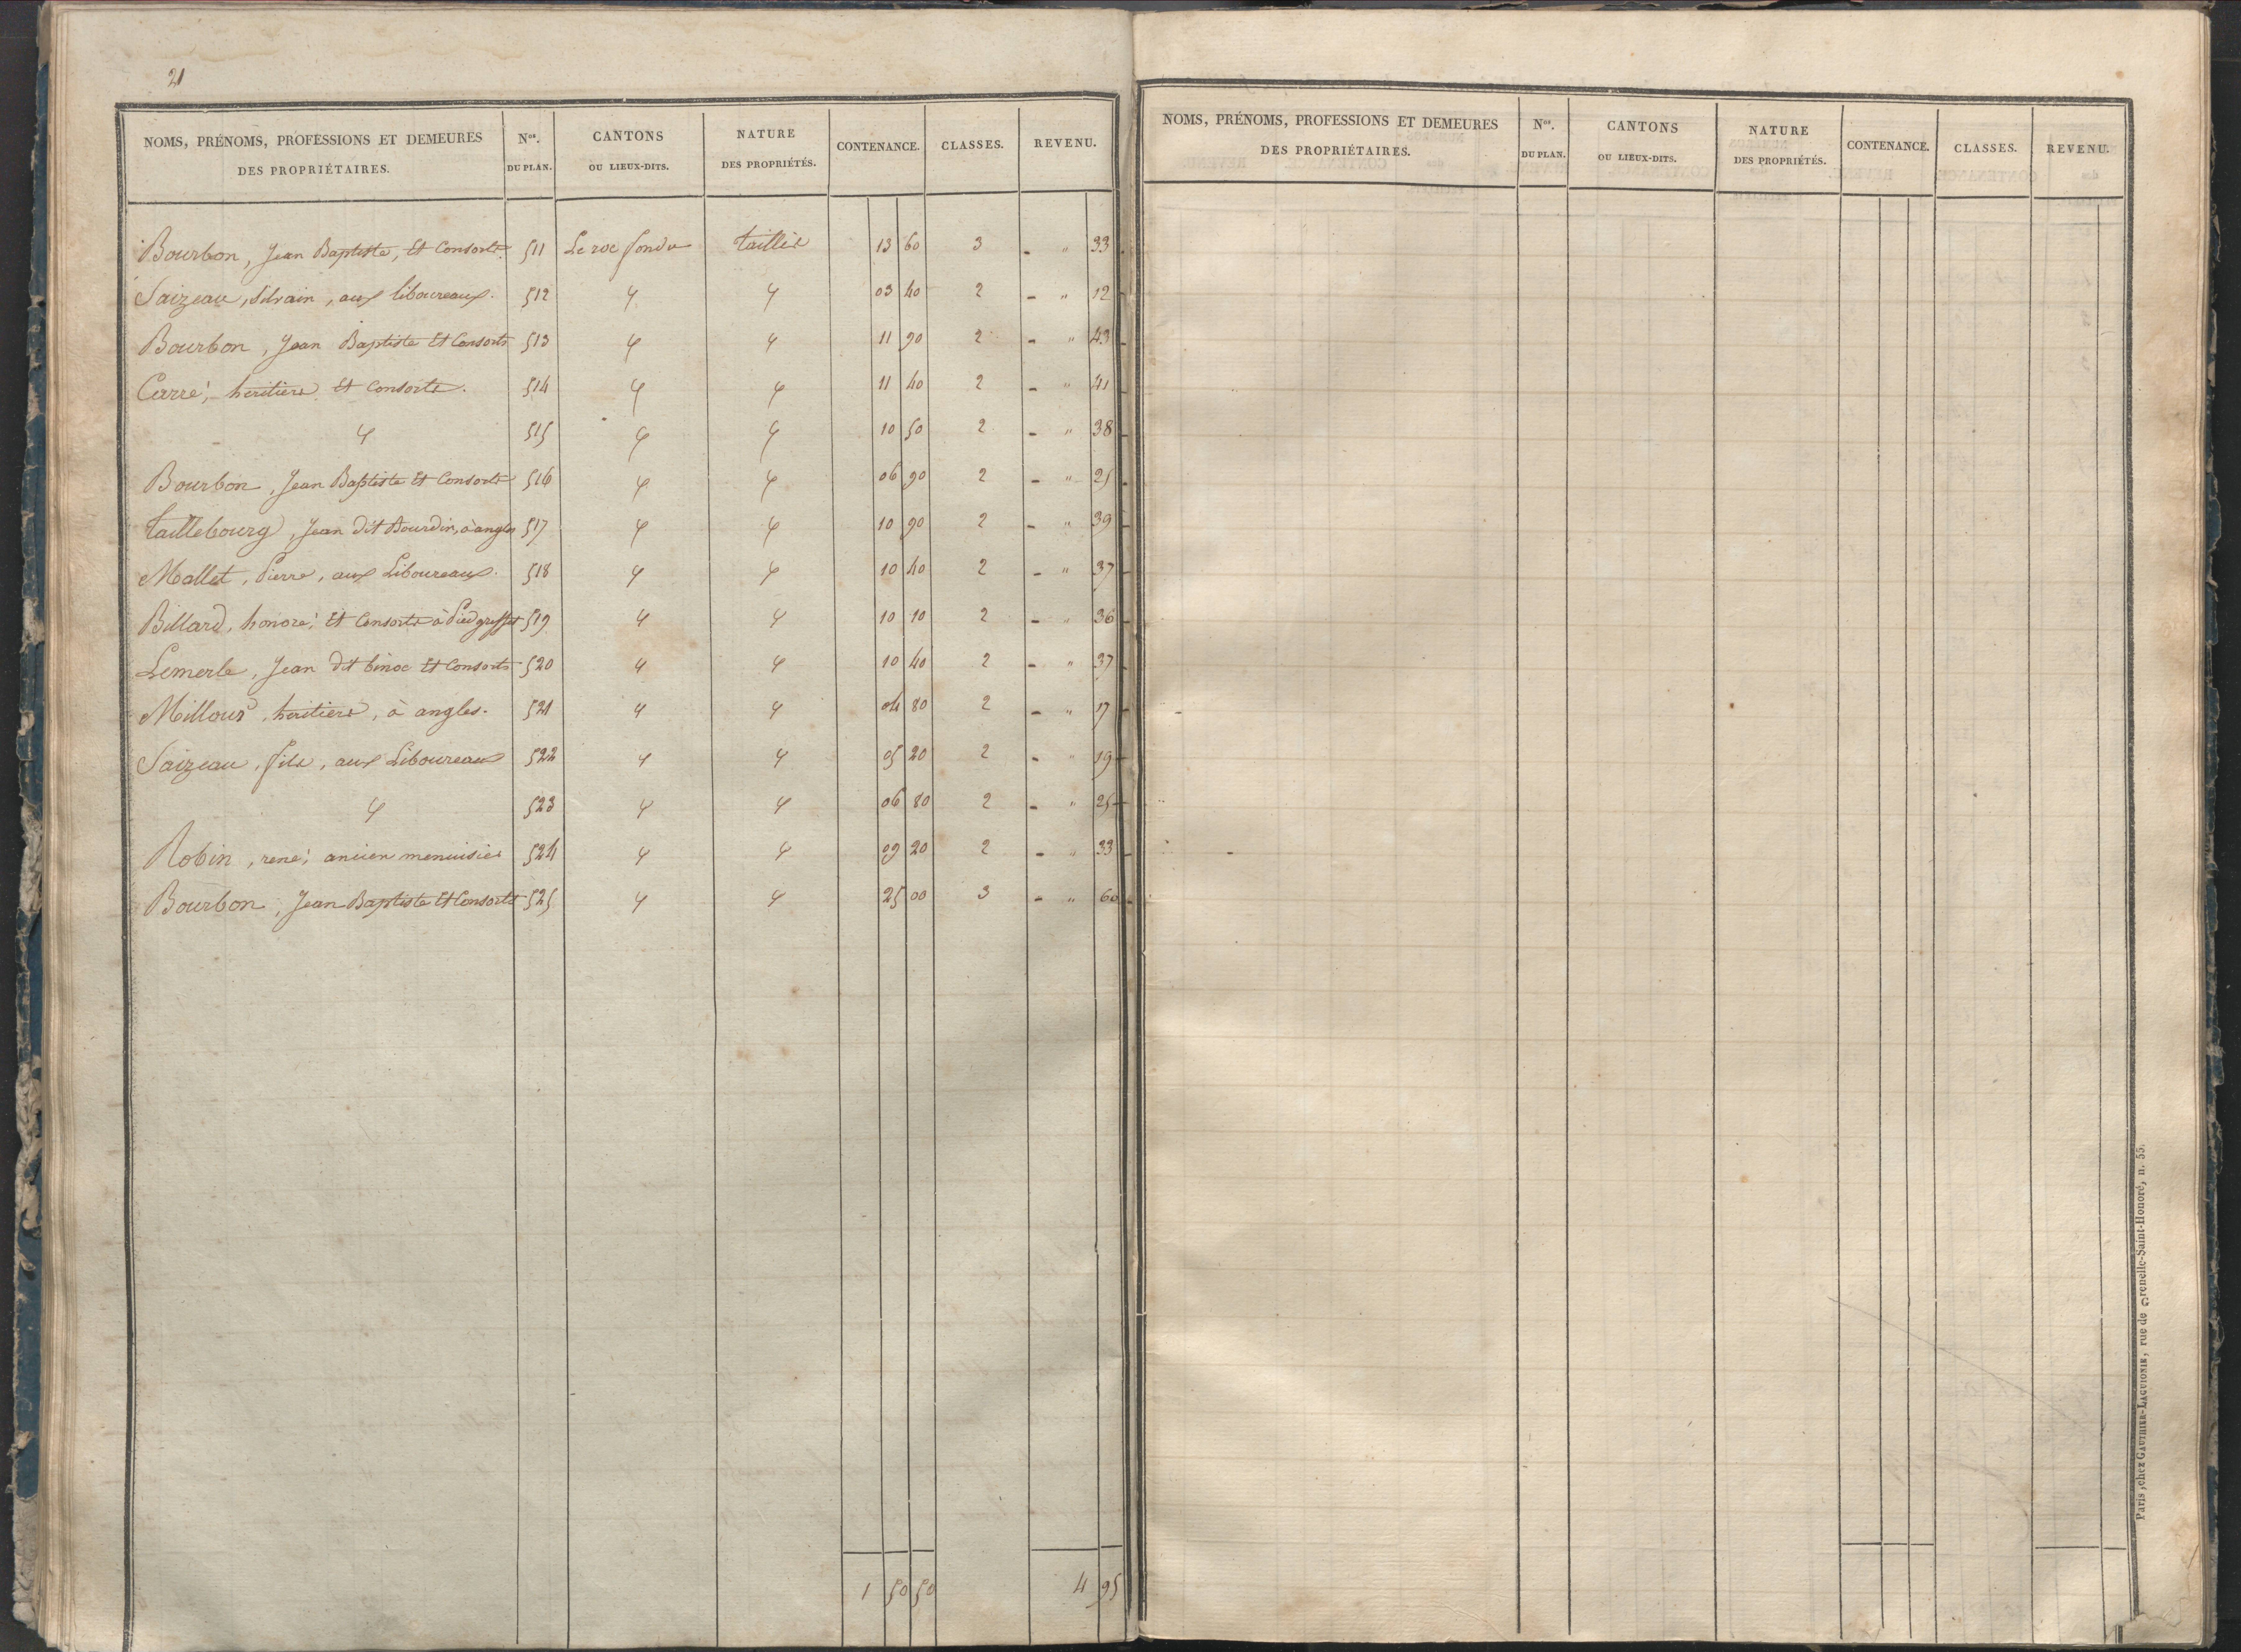 21
NOMS, PRÉNOMS, PROFESSIONS ET DEMEURES DES PROPRIÉTAIRES. Nos. DU PLAN. CANTONS OU LIEUX-DITS. NATURE DES PROPRIÉTÉS. CONTENANCE. CLASSES. REVENU.
Bourbon, Jean Baptiste, Et Consorts. 511 Le roc fondu taillis 13 60 3 - " 33
Saizeau, Silvain, aux liboureaux. 512 " " 03 40 2 - " 12
Bourbon, Jean Baptiste Et Consorts 513 " " 11 90 2 - " 43
Carré, heritiers Et Consorts. 514 " " 11 40 2 - " 41
" 515 " " 10 50 2 - " 38
Bourbon, Jean Baptiste Et Consorts 516 " " 06 90 2 - " 25
taillebourg, Jean dit Bourdin, à angles 517 " " 10 90 2 - " 39
Mallet, Pierre, aux Liboureaux. 518 " " 10 40 2 - " 37
Billard, honoré, Et Consorts à Piedgriffet 519 " " 10 10 2 - " 36
Lemerle, Jean dit binoc Et Consorts 520 " " 10 40 2 - " 37
Millour, heritiers, à angles. 521 " " 04 80 2 - " 17
Saizeau, fils, aux Liboureaux 522 " " 05 20 2 - " 19
" 523 " " 06 80 2 - " 25
Robin, rené, ancien menuisier 524 " " 09 20 2 - " 33
Bourbon, Jean Baptiste Et Consorts 525 " " 25 00 3 - " 60
1 50 50 4 95
NOMS, PRÉNOMS, PROFESSIONS ET DEMEURES DES PROPRIÉTAIRES. Nos. DU PLAN. CANTONS OU LIEUX-DITS. NATURE DES PROPRIÉTÉS. CONTENANCE. CLASSES. REVENU.
Paris, chez GAUTHIER-LAGUIONIE, rue de Grenelle-Saint-Honoré, n. 55.